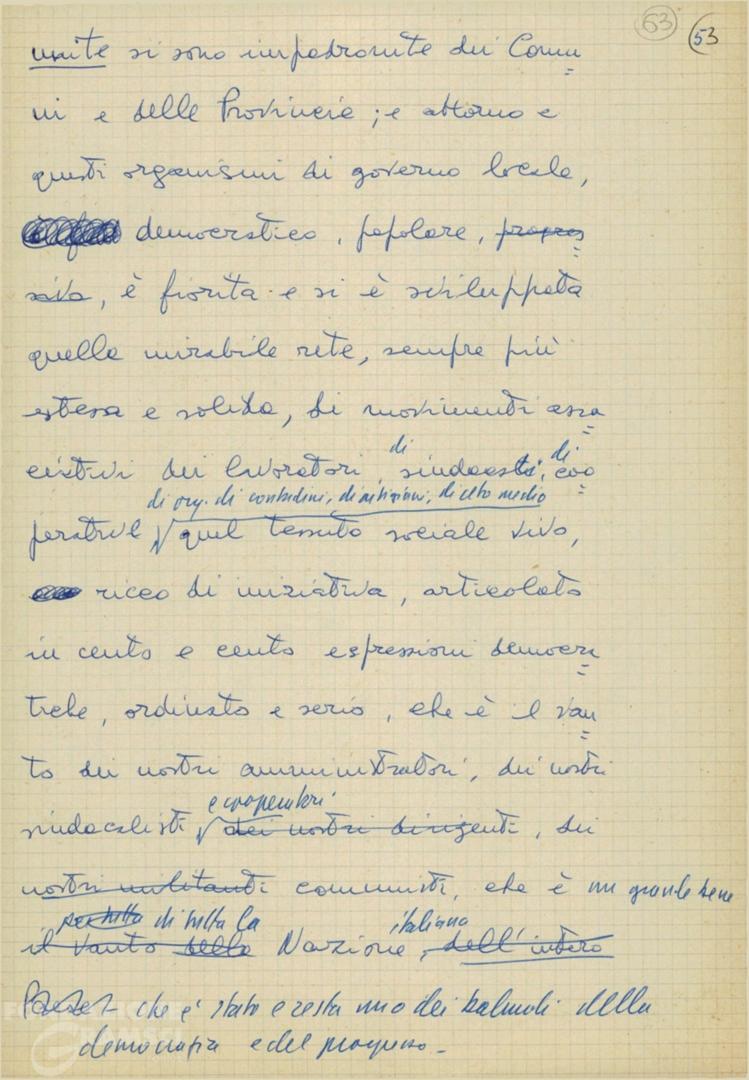 63 53
unite si sono impadronite dei Comu
ni e delle Provincie; e attorno a
questi organismi di governo locale,
democratico, popolare, progres
sivo, è fiorita e si è sviluppata
quella mirabile rete, sempre più
estesa e solida, di movimenti asso
ciativi dei lavoratori, di sindacati, di coo
di org. di contadini, di artigiani, di ceto medio
perative quel tessuto sociale vivo,
ricco di iniziativa, articolato
in cento e cento espressioni democra
tiche, ordinato e serio, che è il van
to dei nostri amministratori, dei nostri
e cooperatori
sindacalisti dei nostri dirigenti, dei
nostri militanti comunisti, che è un grande bene
per tutta di tutta la italiana
il vanto della Nazione, dell'intero
Paese - che è stato e resta uno dei baluardi della
democrazia e del progresso -
FONDAZIONE
GRAMSCI